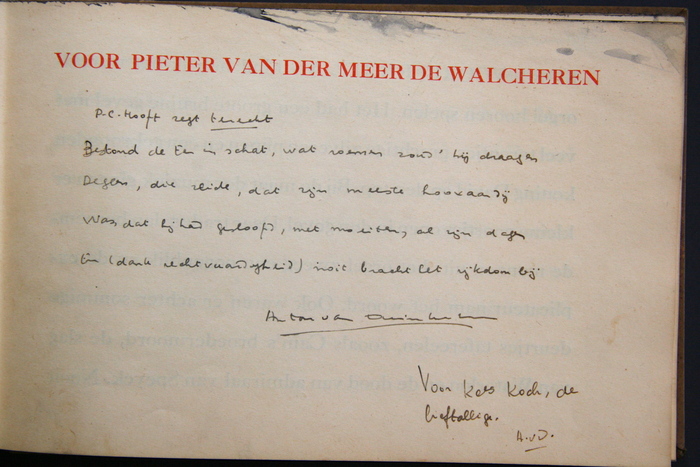 VOOR PIETER VAN DER MEER DE WALCHEREN
P.C. Hooft zegt terecht
Bestond de Eer in schat, wat roemen zoud' hij draagen
Degeen, die zeide, dat zijn meeste hoovaardij
Was dat hij had geslooft, met moeiten, al zijn dagen
En (dank rechtvaardigheid) nooit bracht het rijkdom bij
Anton van Duinkerken
Voor Kees Koch, de
lieftallige.
A.v.D.